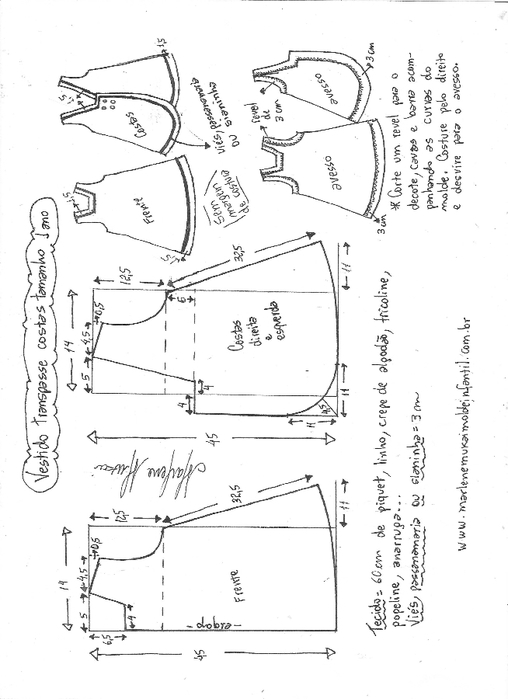 Vestido transpasse costas tamanho 1 ano
14
5
4,5
0,5
12,5
6,5
4
Frente
dobra
45
32,5
11
Marlene Mukai
14
5
4,5
0,5
12,5
6
4
4
Costas
direita
e
esquerda
45
32,5
11
11
4,5
11
1,5
Frente
1,5
Sem
margem
de costura
1,5
1,5
costas
Viés, passamanaria
ou sianinha
revel
de
3 cm
avesso
3 cm
avesso
3 cm
*Corte um revel para o
decote, cavas e barra acom-
panhando as curvas do
molde. Costure pelo direito
e desvire para o avesso.
Tecido = 60cm de piquet, linho, crepe de algodão, tricoline,
popeline, anarruga...
Viés, passamanaria ou sianinha = 3 cm
www.marlenemukaimoldeinfantil.com.br